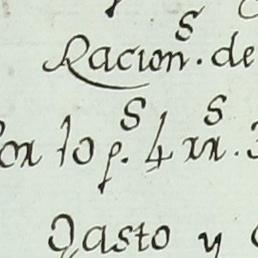 Racion.ˢ de
por 10 p.ˢ 4 rr.ˢ 3
Gasto y